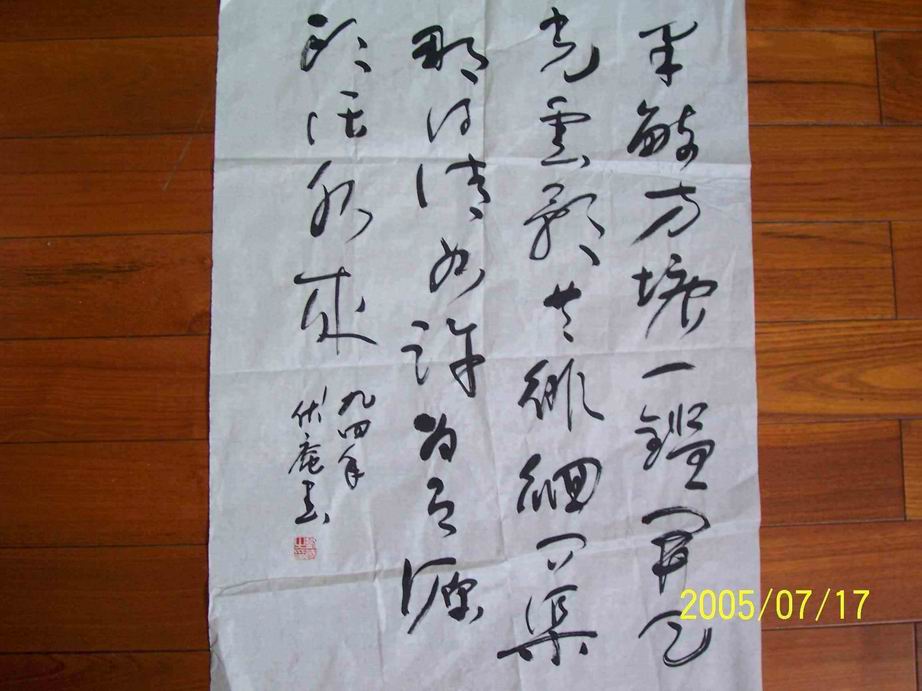 半畝方塘一鑑開天
光雲影共徘徊問渠
那得清如許為有源
頭活水來
九四年
伏庵書
2005/07/17